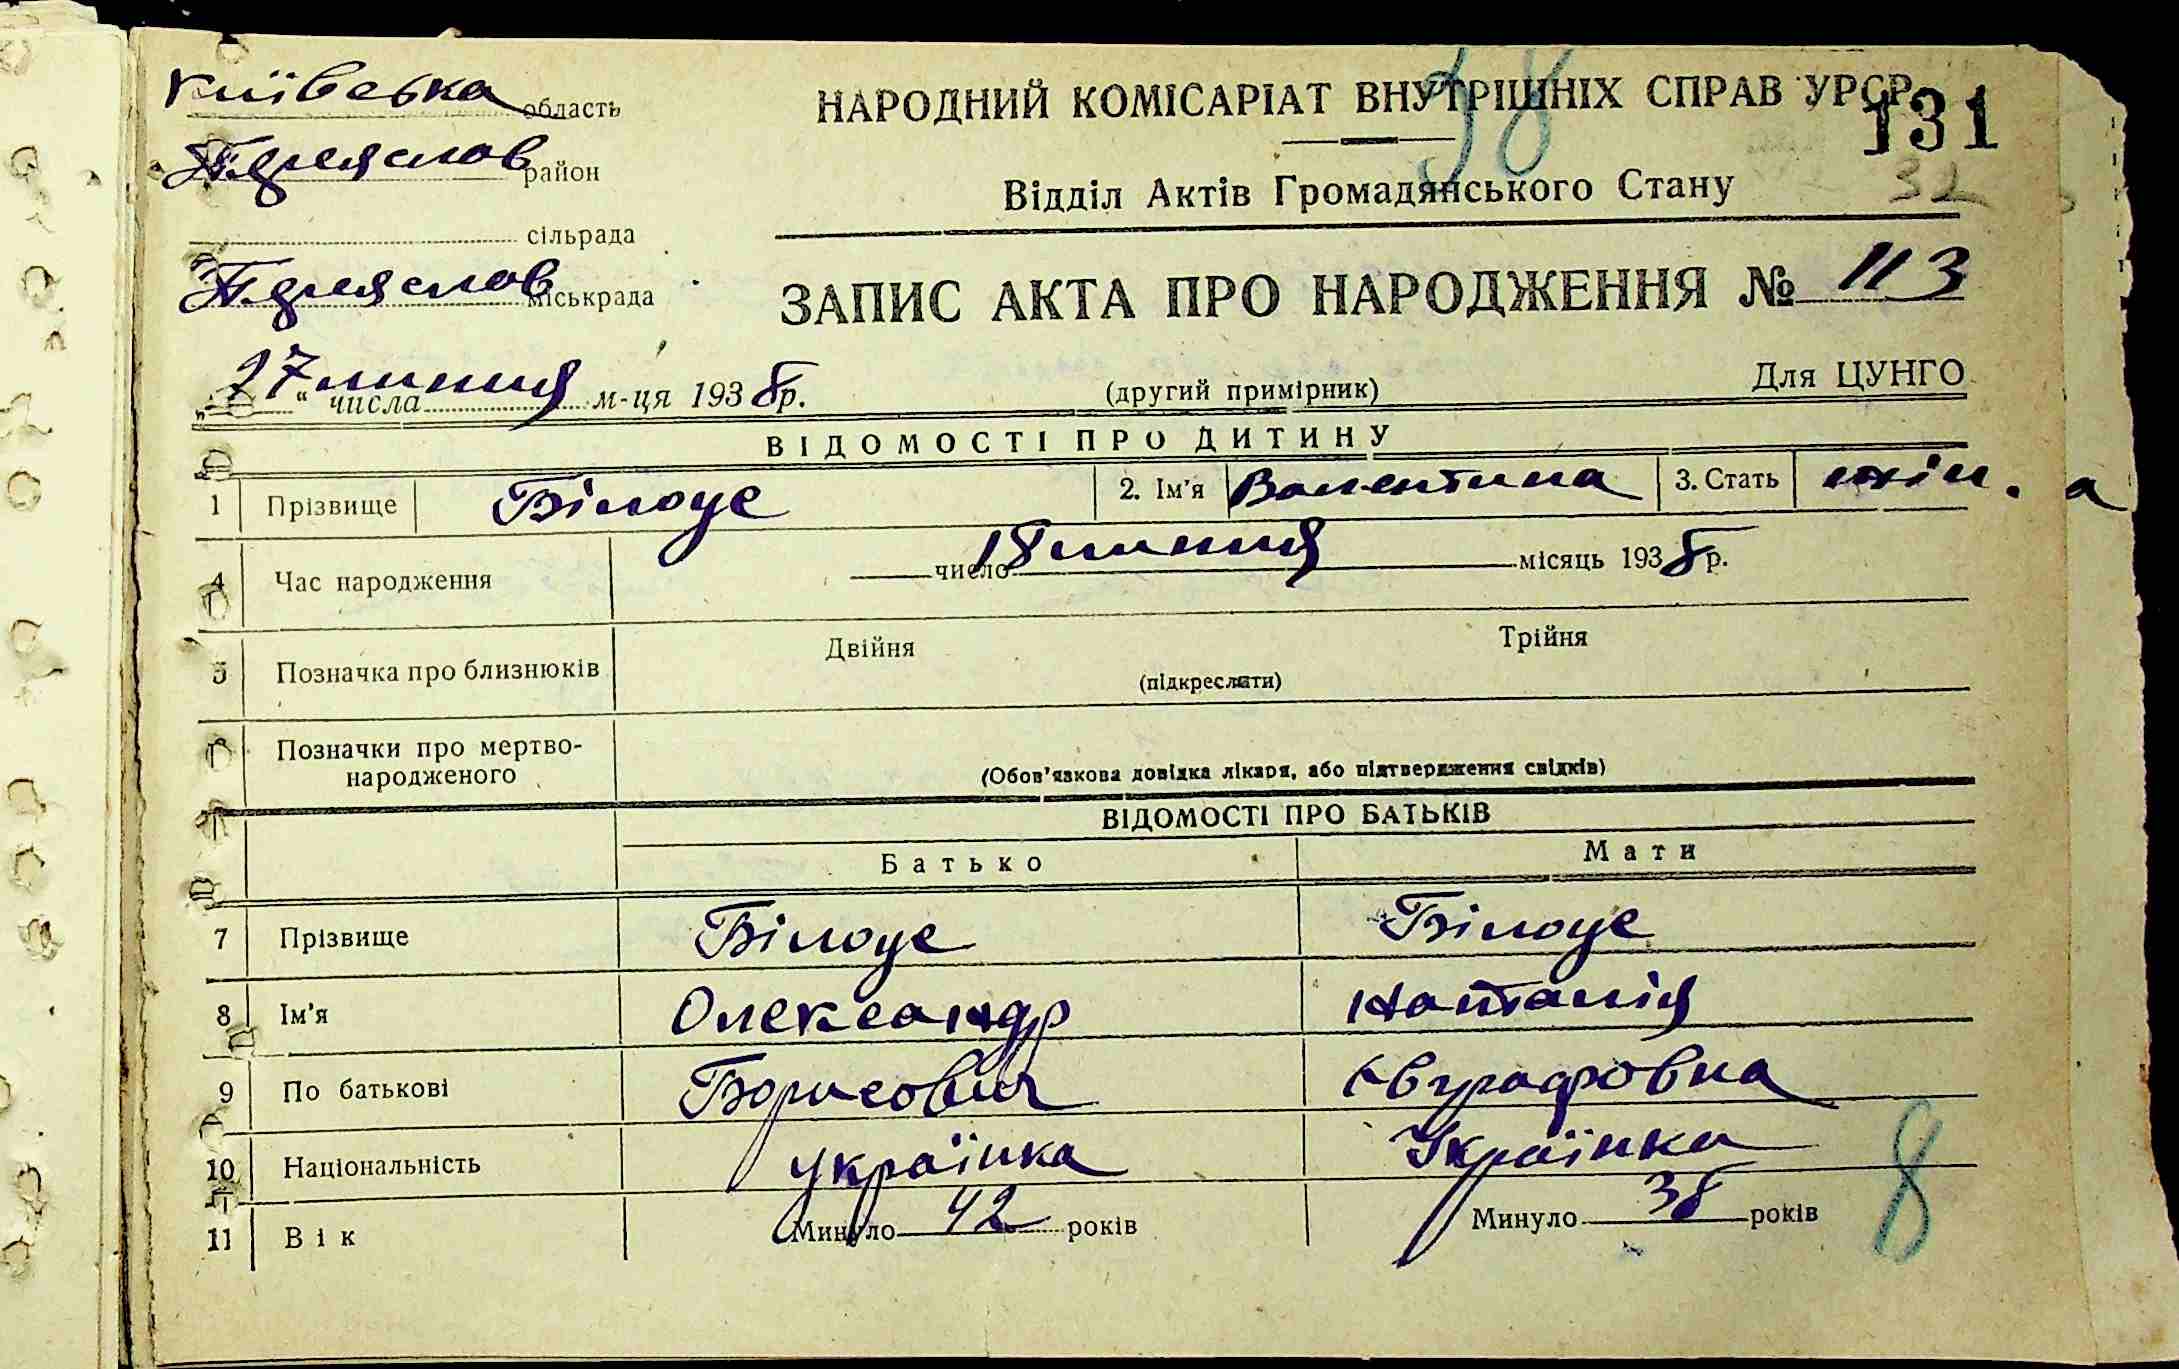 Київська область
НАРОДНИЙ КОМІСАРІАТ ВНУТРІШНІХ СПРАВ УРСР
38
131
Переяслов район
Відділ Актів Громадянського Стану
32
сільрада
Переяслов міськрада
ЗАПИС АКТА ПРО НАРОДЖЕННЯ № 113
„27“ числа липня м-ця 1938 р.
(другий примірник)
Для ЦУНГО
ВІДОМОСТІ ПРО ДИТИНУ
1 Прізвище Білоус 2. Ім'я Валентина 3. Стать жін.
4 Час народження число 18 липня місяць 1938 р.
5 Позначка про близнюків Двійня Трійня
(підкреслити)
Позначки про мертво-
народженого
(Обов'язкова довідка лікаря, або підтвердження свідків)
ВІДОМОСТІ ПРО БАТЬКІВ
Батько Мати
7 Прізвище Білоус Білоус
8 Ім'я Олександр Наталія
9 По батькові Борисович Євграфовна
10 Національність українка Українка
11 Вік Минуло 42 років Минуло 38 років
8